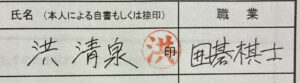 氏名（本人による自書もしくは捺印） 職業
洪 清泉 洪 印 囲碁棋士